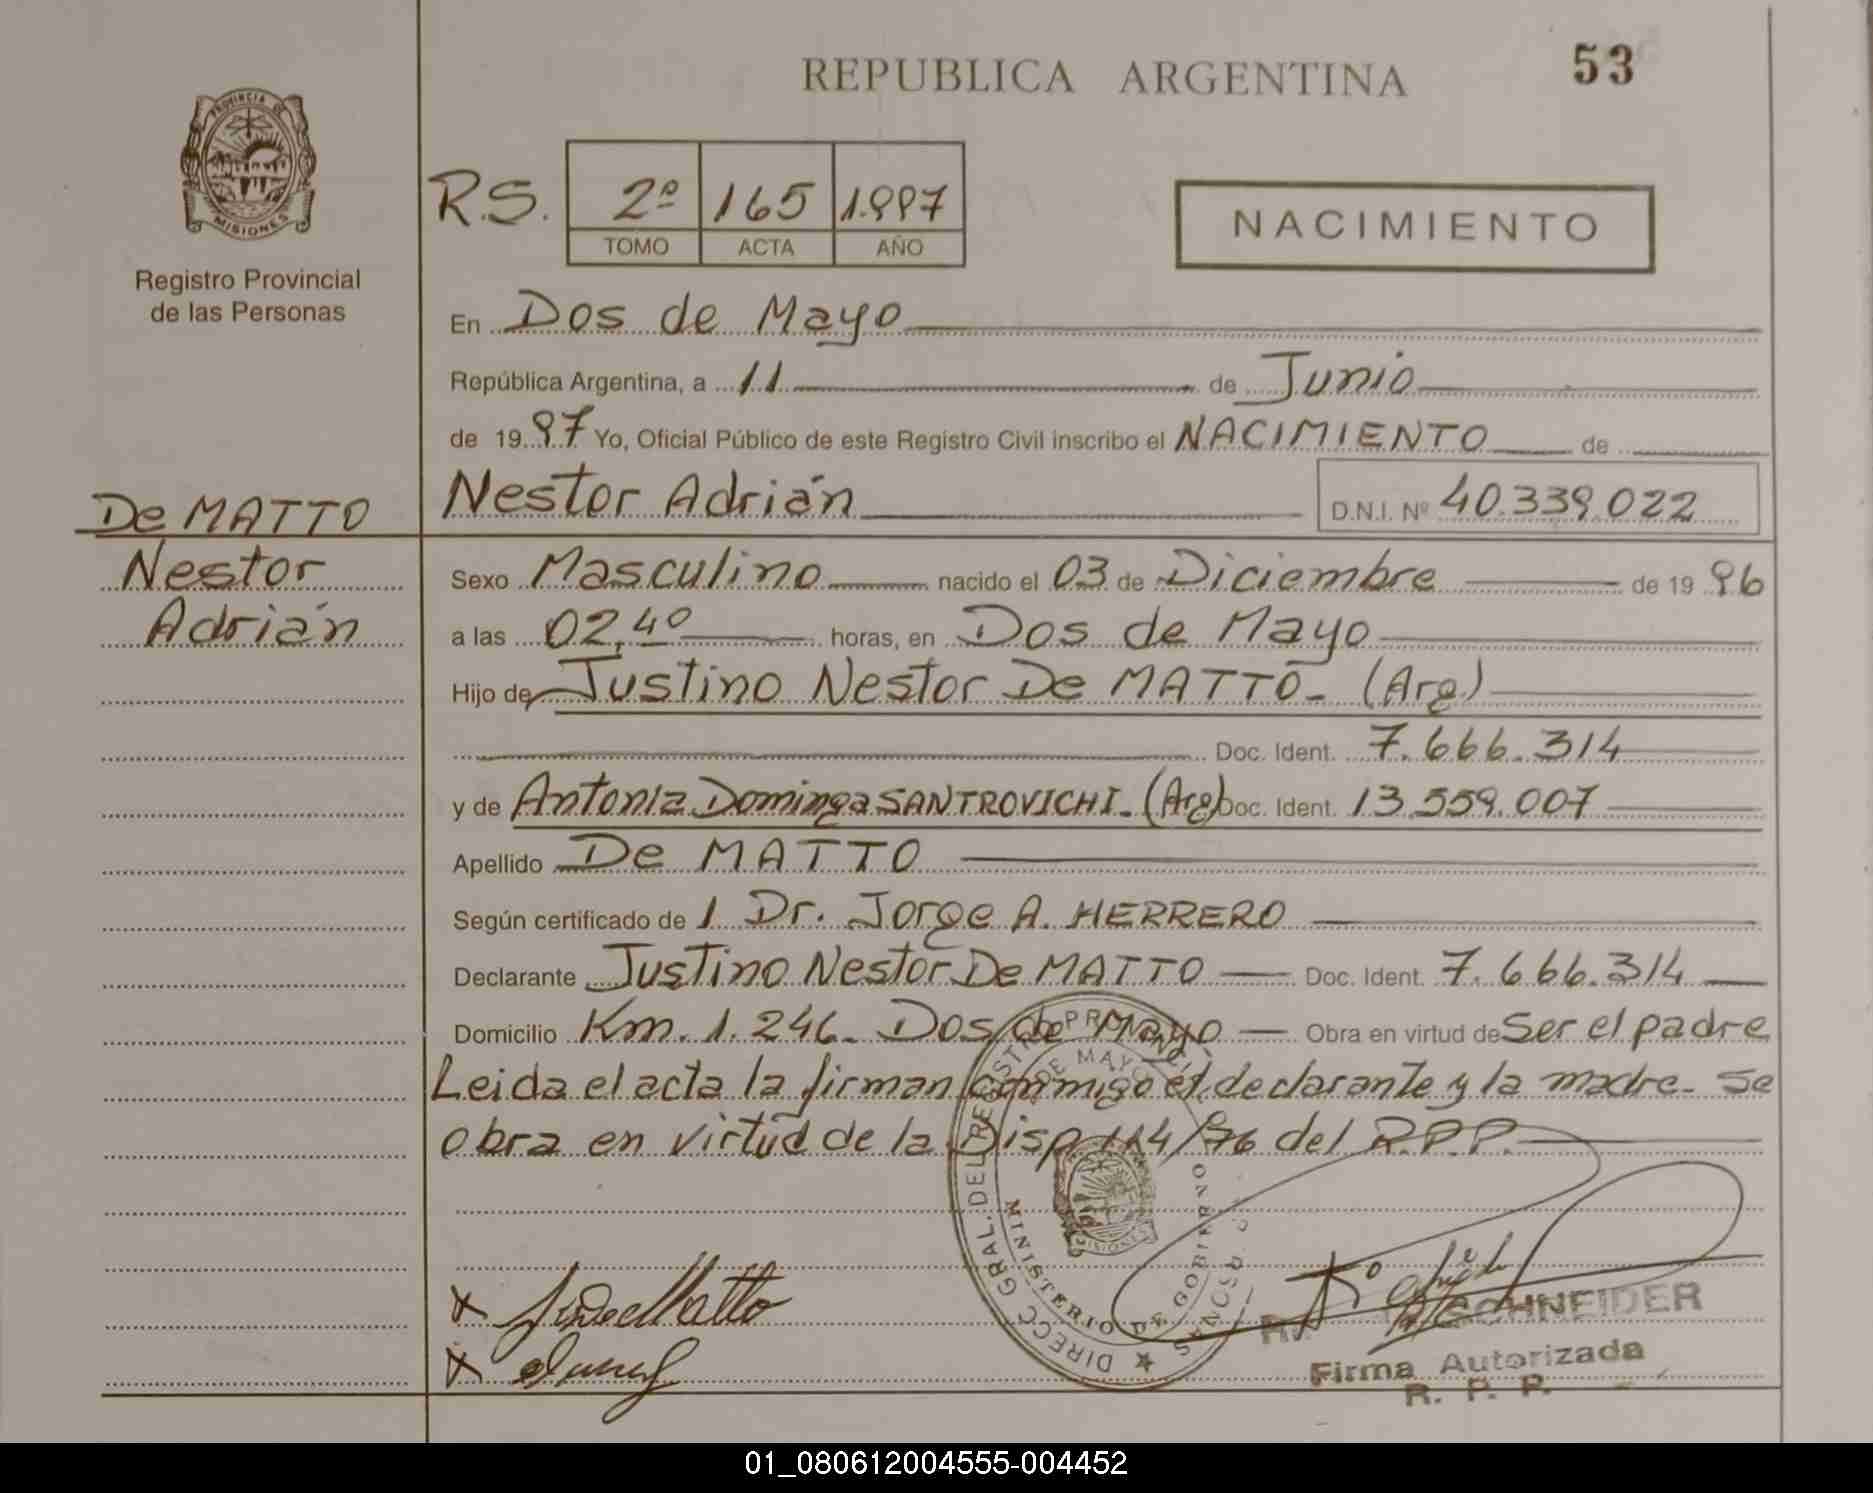 53
REPUBLICA ARGENTINA
PROVINCIA DE
MISIONES
Registro Provincial
de las Personas
R.S. 2º 165 1.997
TOMO ACTA AÑO
NACIMIENTO
En Dos de Mayo
República Argentina, a 11 de Junio
de 1997 Yo, Oficial Público de este Registro Civil inscribo el NACIMIENTO de
De MATTO
Nestor
Adrián
Nestor Adrián D.N.I. Nº 40.339.022
Sexo Masculino nacido el 03 de Diciembre de 1996
a las 02,40 horas, en Dos de Mayo
Hijo de Justino Nestor De MATTO- (Arg)
Doc. Ident. 7.666.314
y de Antonia Dominga SANTROVICHI- (Arg) Doc. Ident. 13.559.007
Apellido De MATTO
Según certificado de 1 Dr. Jorge A. HERRERO
Declarante Justino Nestor De MATTO Doc. Ident. 7.666.314
Domicilio Km. 1.246- Dos de Mayo Obra en virtud de Ser el padre
Leida el acta la firman conmigo el declarante y la madre- se
obra en virtud de la Disp 114/96 del R.P.P.
DIRECC GRAL. DEL REGISTRO PROVINCI
DE MAYO
MINISTERIO DE GOBIERNO
MISIONES
SCHNEIDER
Firma Autorizada
R. P. P.
01_080612004555-004452